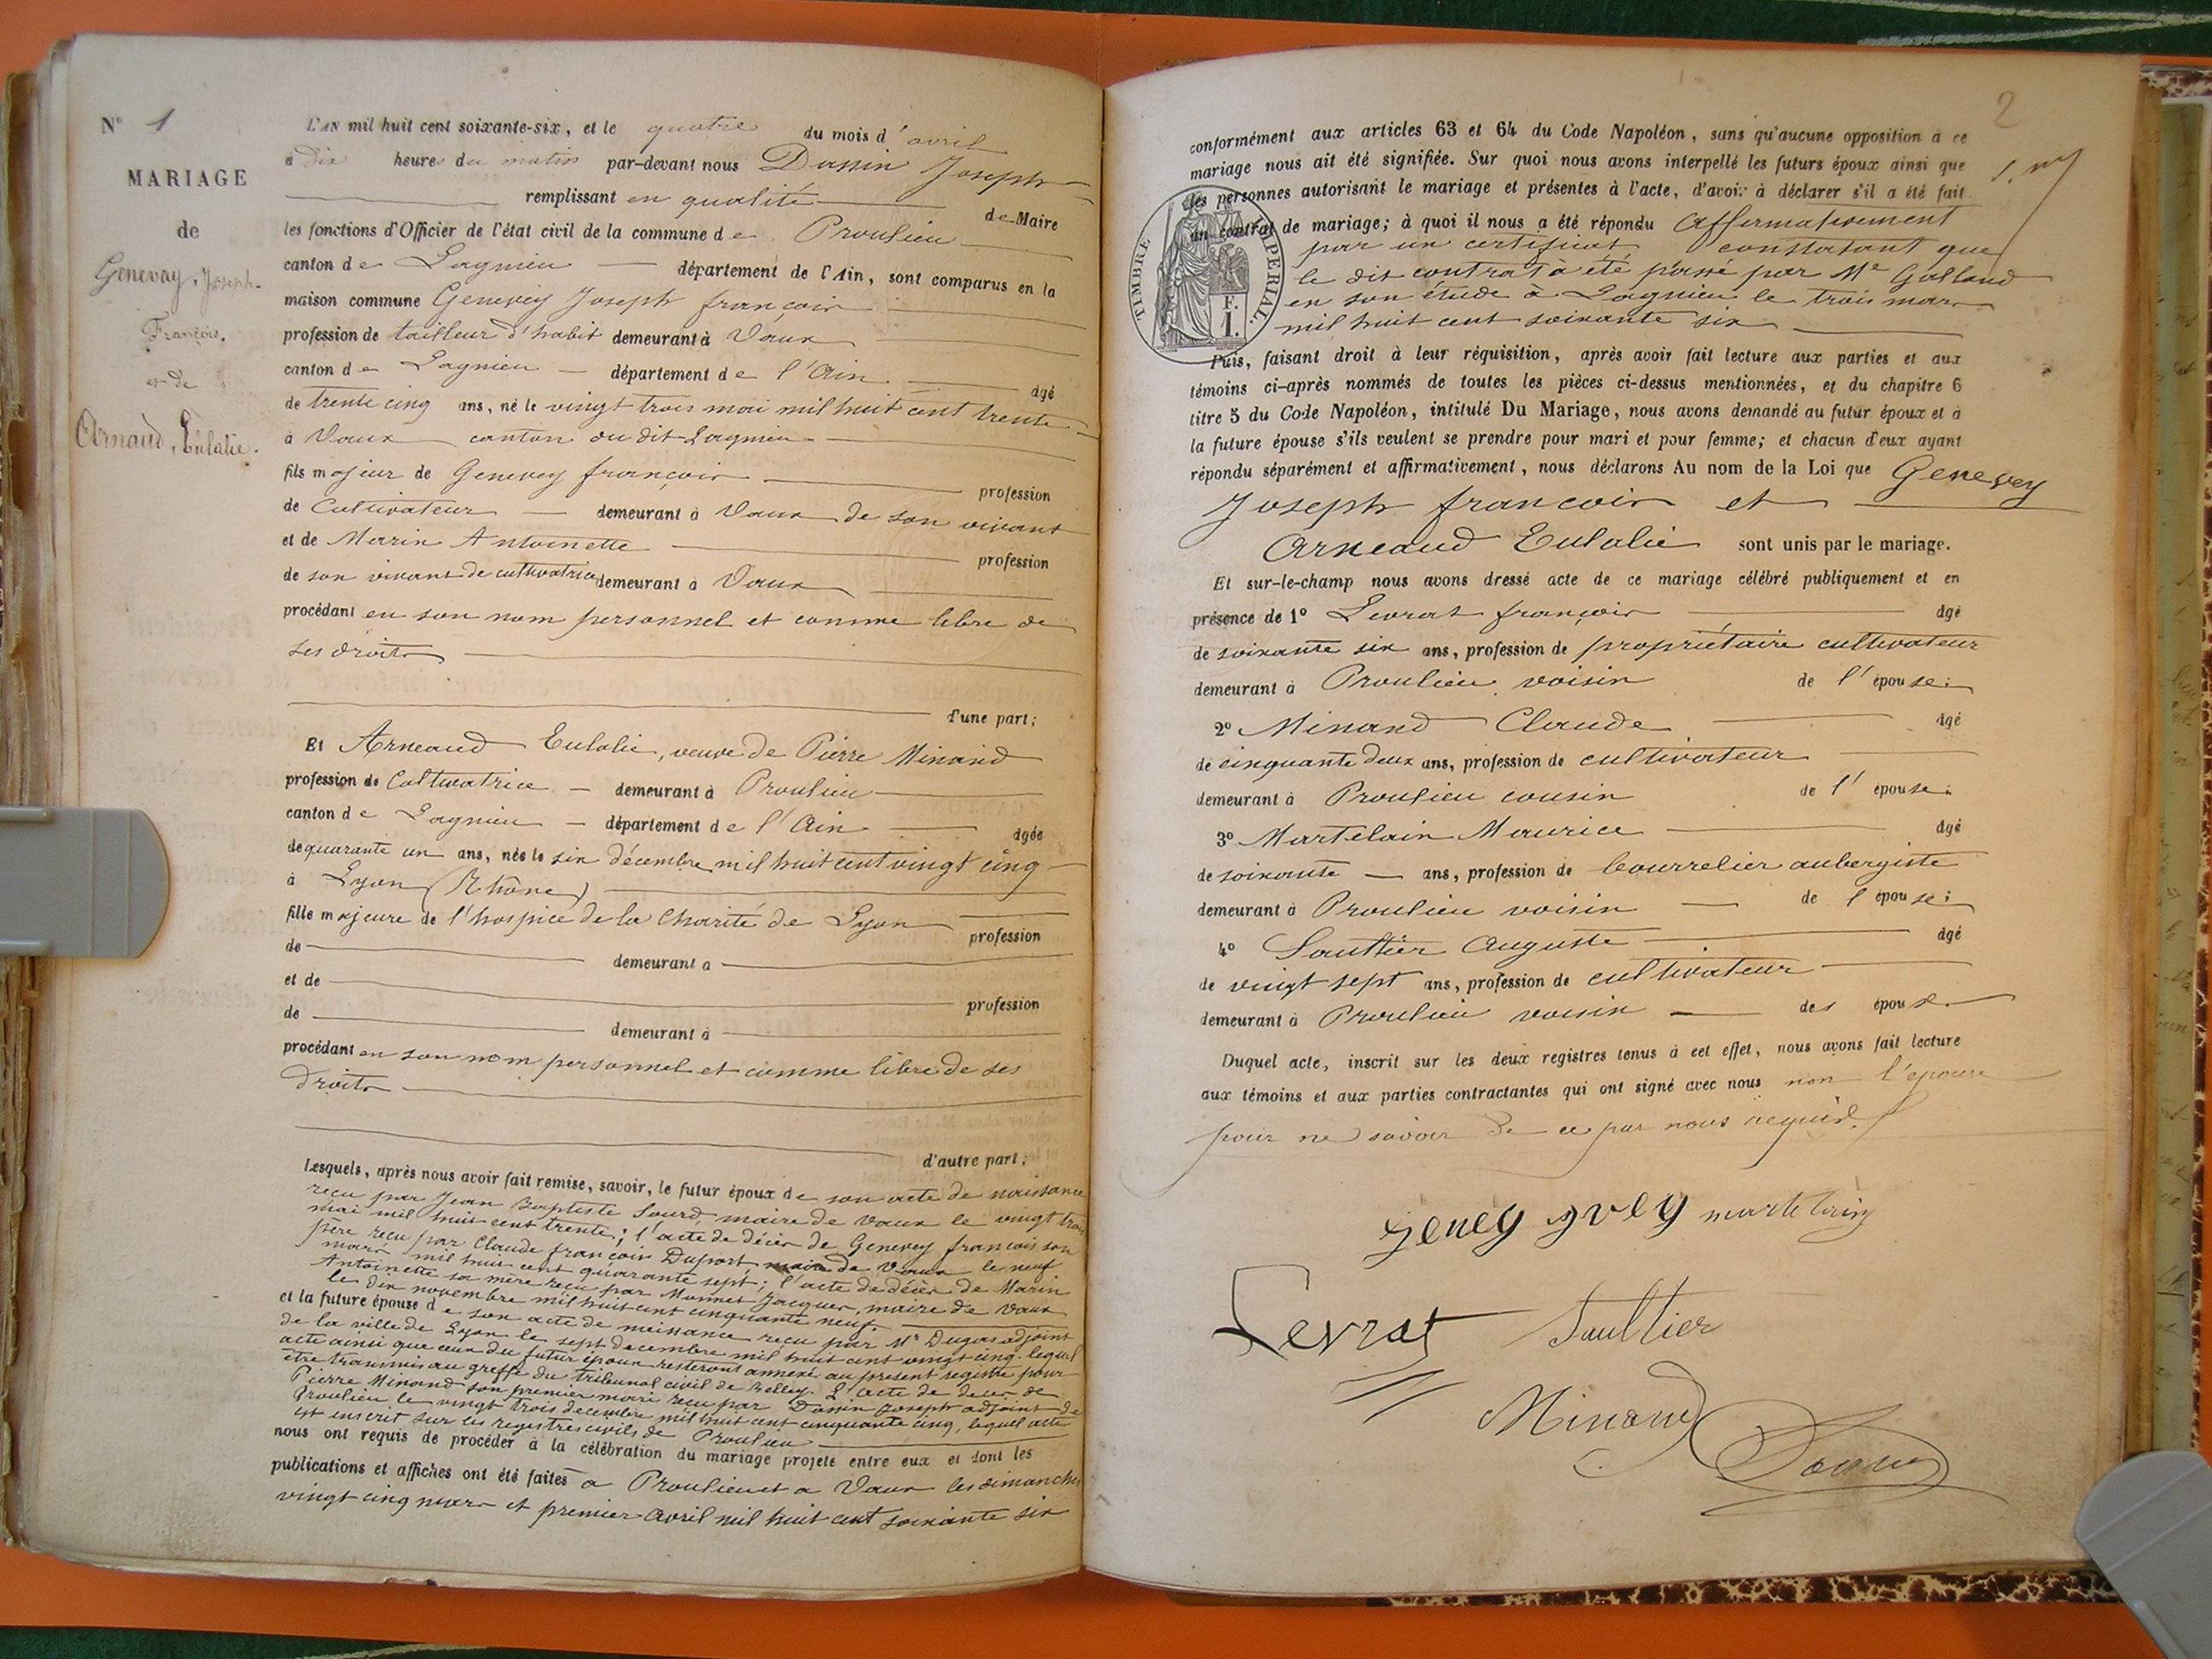 N° 1
MARIAGE
de
Genevay, Joseph-
François.
et de
Arnaud, Eulalie.
L'AN mil huit cent soixante-six, et le quatre du mois d'avril
à dix heures du matin par-devant nous Dassin Joseph
remplissant en qualité de Maire
les fonctions d'Officier de l'état civil de la commune de Proulieu
canton de Lagnieu département de l'Ain, sont comparus en la
maison commune Genevey Joseph françois
profession de tailleur d'habit demeurant à Vaux
canton de Lagnieu département de l'Ain âgé
de trente cinq ans, né le vingt trois mai mil huit cent trente
à Vaux canton du dit Lagnieu
fils majeur de Genevey françois profession
de Cultivateur demeurant à Vaux de son vivant
et de Marin Antoinette profession
de son vivant de cultivatrice demeurant à Vaux
procédant en son nom personnel et comme libre de
ses droits
d'une part;
Et Arneaud Eulalie, veuve de Pierre Minand
profession de Cultivatrice demeurant à Proulieu
canton de Lagnieu département de l'Ain âgée
de quarante un ans, née le six décembre mil huit cent vingt cinq
à Lyon (Rhône)
fille majeure de l'hospice de la Charité de Lyon
profession
de demeurant à
et de
profession
de demeurant à
procédant en son nom personnel et comme libre de ses
droits
d'autre part;
Lesquels, après nous avoir fait remise, savoir, le futur époux de son acte de naissance
reçu par Jean Baptiste Sourd, maire de Vaux le vingt trois
mai mil huit cent trente; l'acte de décès de Genevey françois son
père reçu par Claude françois Duport maire de Vaux le neuf
mars mil huit cent quarante sept; l'acte de décès de Marin
Antoinette sa mère reçu par Monnet Jacques, maire de Vaux
le dix novembre mil huit cent cinquante neuf
et la future épouse de son acte de naissance reçu par Mr Dugas adjoint
de la ville de Lyon le sept decembre mil huit cent vingt cinq. lequel
acte ainsi que ceux du futur époux resteront annexé au présent registre pour
être transmis au greffe du tribunal civil de Belley. L'acte de deces de
Pierre Minand son premier mari reçu par Dassin Joseph adjoint de
Proulieu le vingt trois decembre mil huit cent cinquante cinq, lequel acte
est inscrit sur les registres civils de Proulieu
nous ont requis de procéder à la célébration du mariage projeté entre eux et dont les
publications et affiches ont été faites a Proulieu et a Vaux les dimanches
vingt cinq mars et premier avril mil huit cent soixante six
2
conformément aux articles 63 et 64 du Code Napoléon, sans qu'aucune opposition à ce
mariage nous ait été signifiée. Sur quoi nous avons interpellé les futurs époux ainsi que
les personnes autorisant le mariage et présentes à l'acte, d'avoir à déclarer s'il a été fait
un contrat de mariage; à quoi il nous a été répondu Affirmativement
par un certificat constatant que
le dit contrat à été passé par Me Golland
en son étude à Lagnieu le trois mars
mil huit cent soixante six
TIMBRE IMPERIAL.
F.
1.
Puis, faisant droit à leur réquisition, après avoir fait lecture aux parties et aux
témoins ci-après nommés de toutes les pièces ci-dessus mentionnées, et du chapitre 6
titre 5 du Code Napoléon, intitulé Du Mariage, nous avons demandé au futur époux et à
la future épouse s'ils veulent se prendre pour mari et pour femme; et chacun d'eux ayant
répondu séparément et affirmativement, nous déclarons Au nom de la Loi que Genevey
Joseph francois et
Arneaud Eulalie sont unis par le mariage.
Et sur-le-champ nous avons dressé acte de ce mariage célébré publiquement et en
présence de 1° Levrat françois âgé
de soixante six ans, profession de propriétaire cultivateur
demeurant à Proulieu voisin de l'épouse.
2° Minand Claude âgé
de cinquante deux ans, profession de cultivateur
demeurant à Proulieu cousin de l'épouse.
3° Martelain Maurice âgé
de soixante ans, profession de bourrelier aubergiste
demeurant à Proulieu voisin de l'épouse;
4° Saultier Auguste âgé
de vingt sept ans, profession de cultivateur
demeurant à Proulieu voisin des épouse.
Duquel acte, inscrit sur les deux registres tenus à cet effet, nous avons fait lecture
aux témoins et aux parties contractantes qui ont signé avec nous non l'epouse
pour ne savoir de ce par nous requis.
martelain
Levrat Saultier
Minand